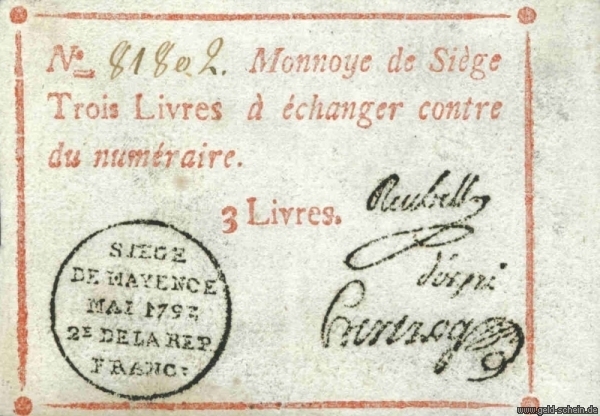 No. 81802. Monnoye de Siège
Trois Livres à échanger contre
du numéraire.
3 Livres.
Reubell
SIEGE
DE MAYENCE
MAI 1793
2E DE LA REP.
FRANC:
www.geld-schein.de